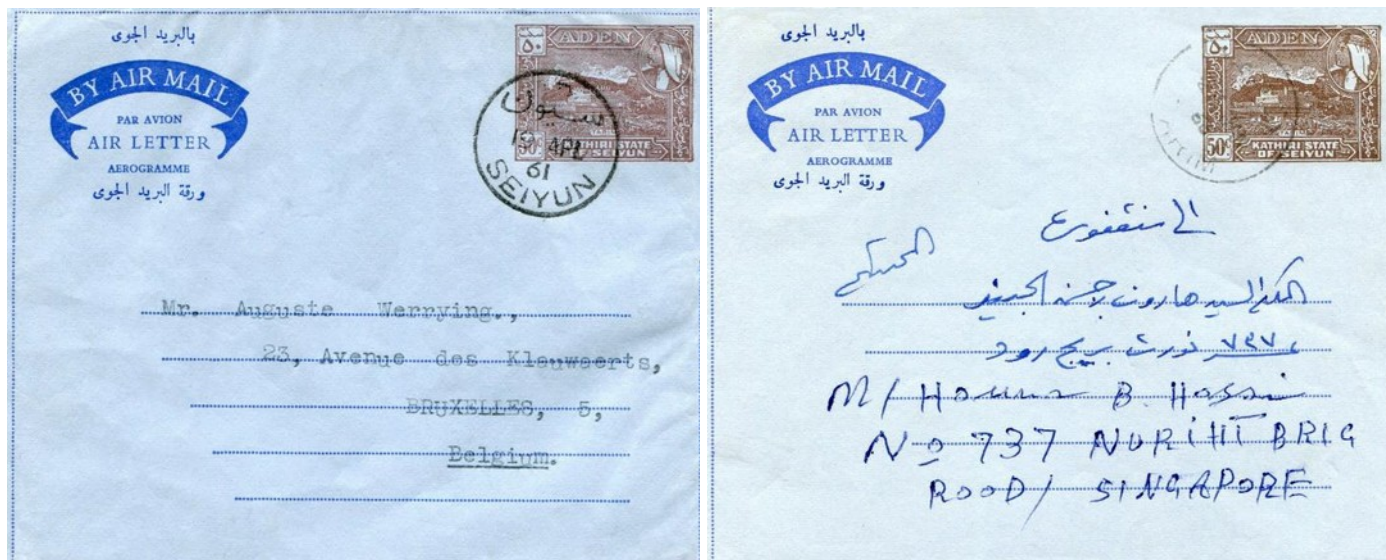 بالبريد الجوى
BY AIR MAIL
PAR AVION
AIR LETTER
AEROGRAMME
ورقة البريد الجوى
٥٠
ADEN
50
KATHIRI STATE
OF SEIYUN
سيون
19 APL
61
SEIYUN
Mr. Auguste Werrying.,
23, Avenue des Klauwaerts,
BRUXELLES, 5,
Belgium.
بالبريد الجوى
BY AIR MAIL
PAR AVION
AIR LETTER
AEROGRAMME
ورقة البريد الجوى
٥٠
ADEN
50c
KATHIRI STATE
OF SEIYUN
المكرم السيد هارون بن حسن الجنيد
٧٣٧ نورث بريج رود
M/ Haruna B. Hassan
No 737 NURIHT BRIG
ROOD/ SINGAPORE